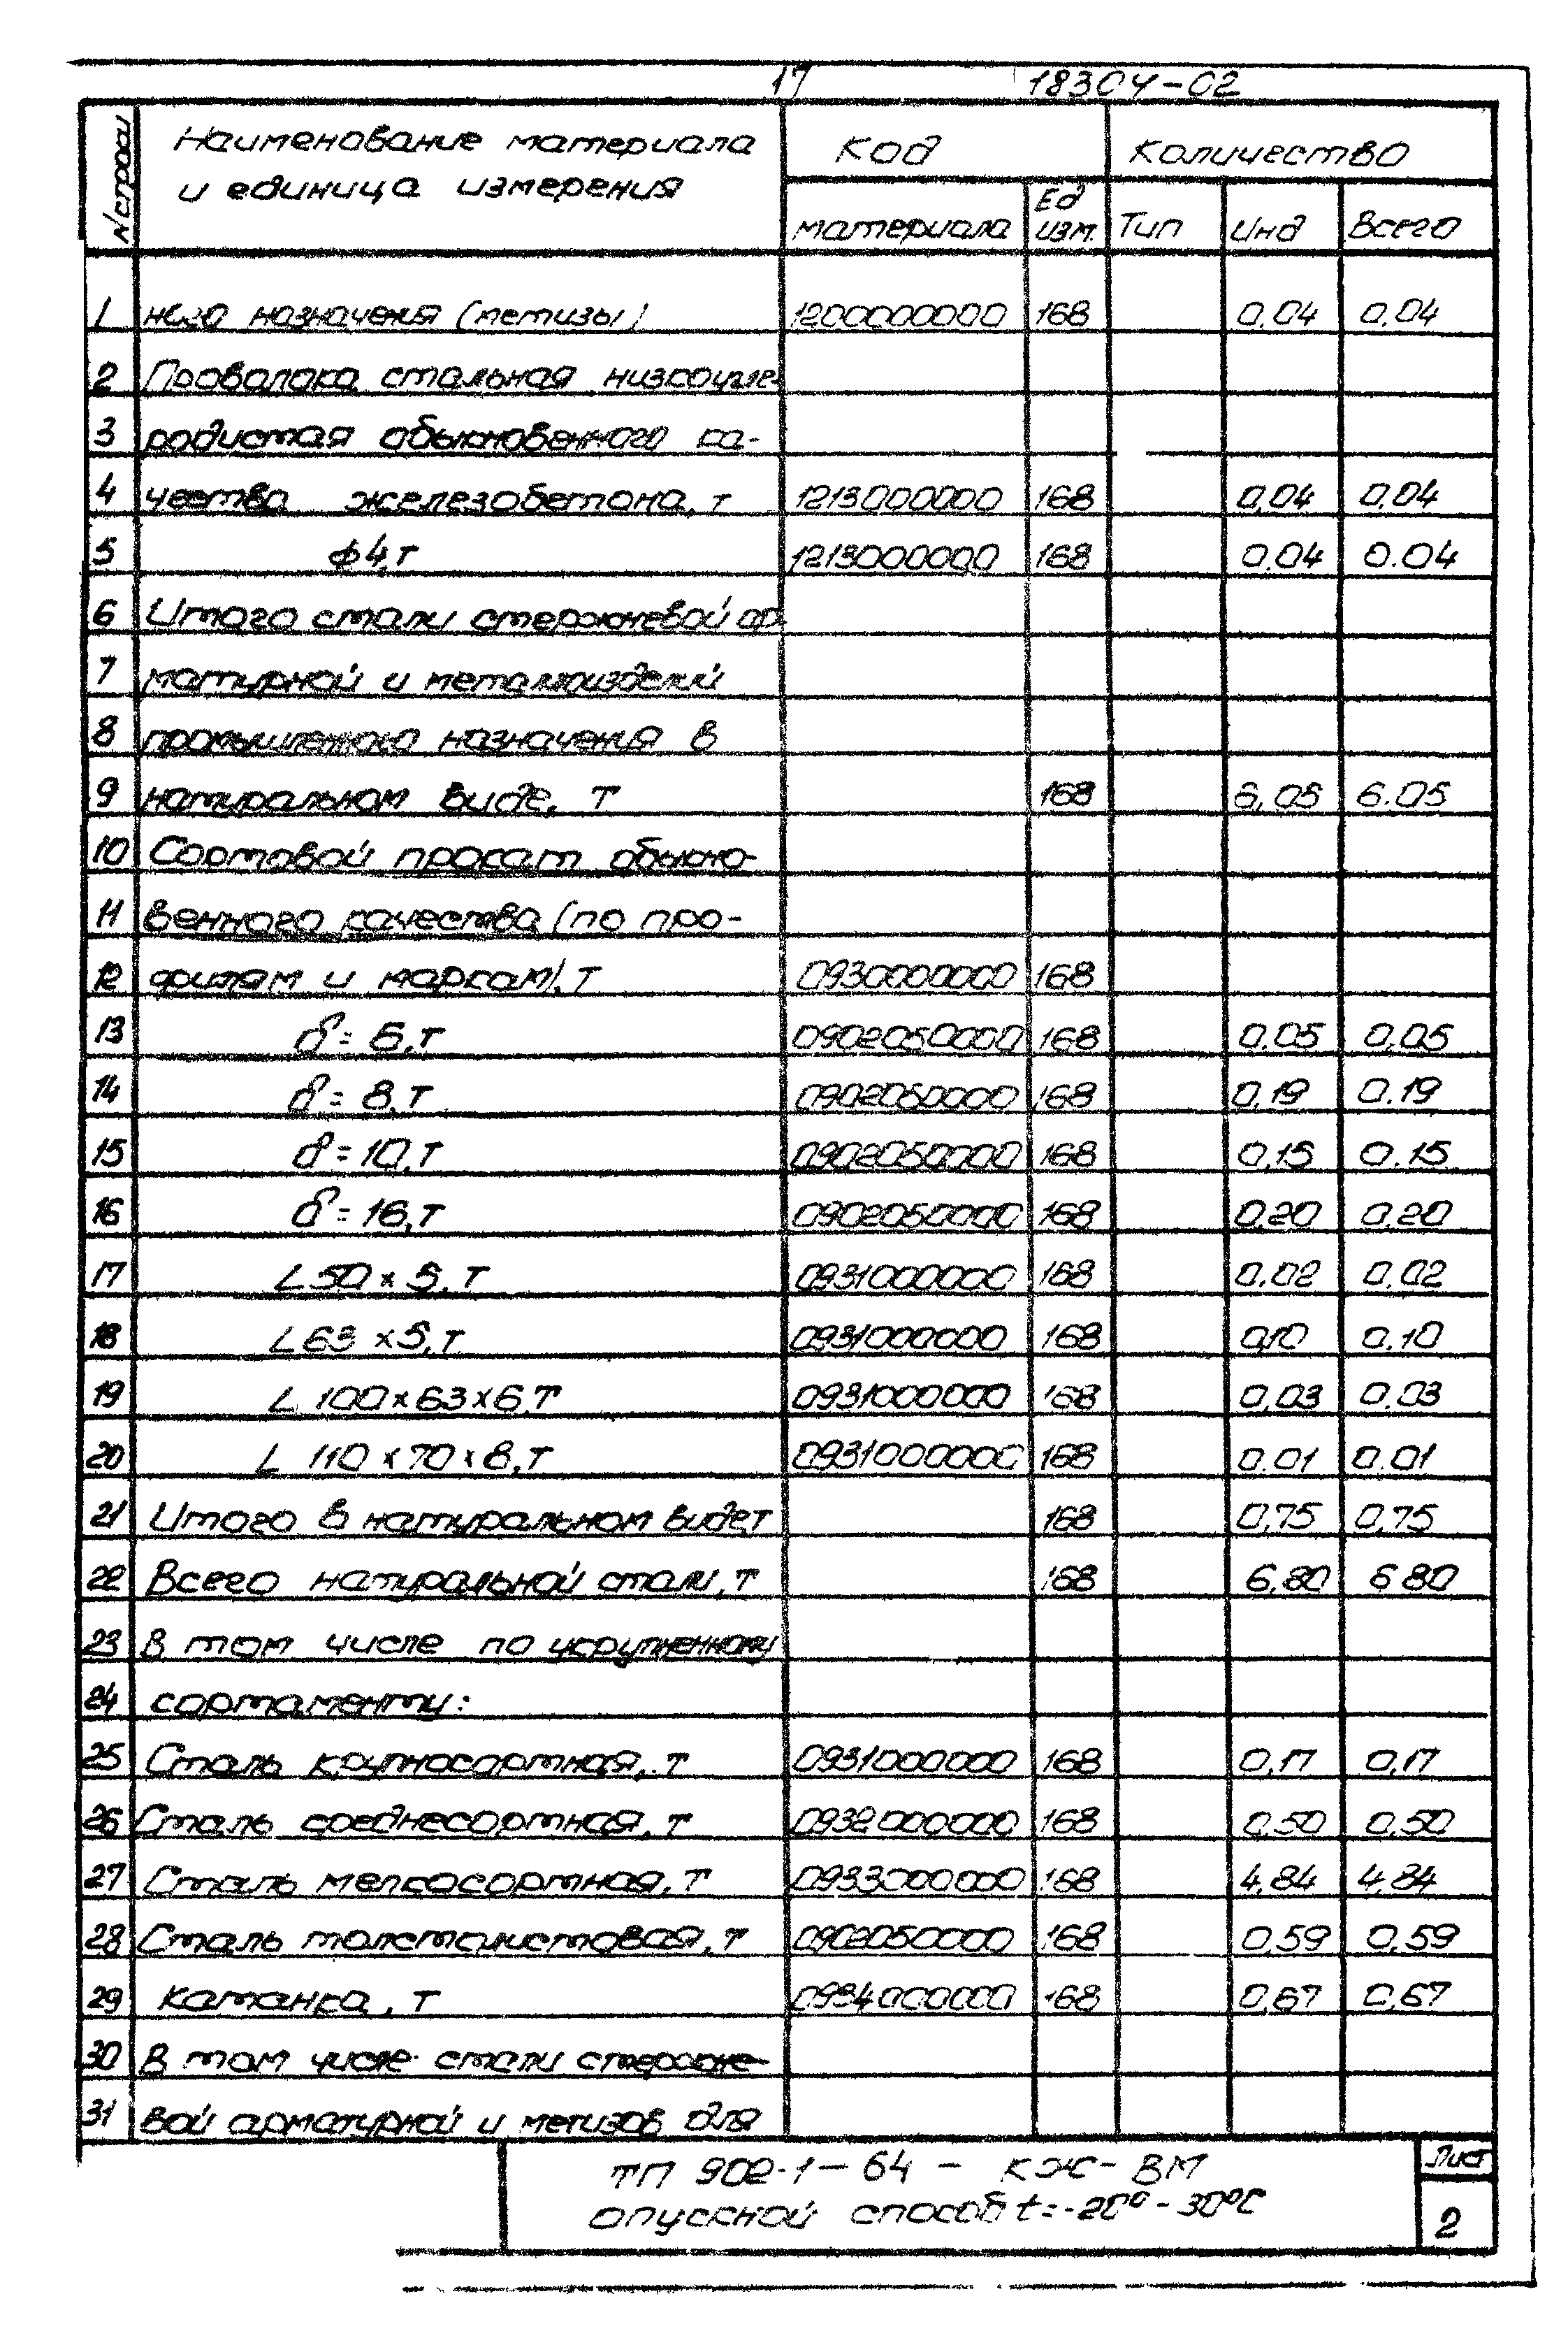 17 18304-02
N строки Наименование материала и единица измерения Код Количество
материала Ед изм. Тип Инд Всего
1 ного назначения (метизы) 1200000000 168 0.04 0.04
2 Проволока стальная низкоугле-
3 родистая обыкновенного ка-
4 чества железобетона, т 1213000000 168 0,04 0.04
5 ф4,т 1213000000 168 0.04 0.04
6 Итого стали стержневой ар-
7 матурной и металлоизделий
8 промышленного назначения в
9 натуральном виде, т 168 6,05 6.05
10 Сортовой прокат обыкно-
11 венного качества (по про-
12 филям и маркам), т 0930000000 168
13 δ= 6,т 0902050000 168 0.05 0,05
14 δ= 8,т 0902050000 168 0,19 0.19
15 δ=10,т 0902050000 168 0,15 0.15
16 δ=16,т 0902050000 168 0,20 0.20
17 L 50×5,т 0931000000 168 0.02 0.02
18 L 63×5,т 0931000000 168 0,10 0.10
19 L 100×63×6,т 0931000000 168 0,03 0.03
20 L 110×70×8,т 0931000000 168 0.01 0.01
21 Итого в натуральном виде,т 168 0,75 0,75
22 Всего натуральной стали, т 168 6,80 6 80
23 В том числе по укрупненному
24 сортаменту:
25 Сталь крупносортная, т 0931000000 168 0,17 0,17
26 Сталь среднесортная, т 0932000000 168 0,50 0,50
27 Сталь мелкосортная, т 0933000000 168 4,84 4,84
28 Сталь толстолистовая, т 0902050000 168 0,59 0,59
29 Катанка, т 0934000000 168 0,67 0,67
30 В том числе стали стержне-
31 вой арматурной и метизов для
ТП 902-1-64 - КЖ-ВМ Лист
опускной способ t=-20°-30°С 2